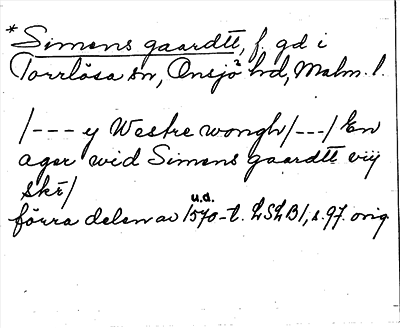 *Simens gaardtt, f. gd i
Torrlösa sn, Onsjö hd, Malm. l.
/--- y Westre wongh/---/ En
ager wid Simens gaardtt viij
skr/
u.d.
förra delen av 1570-t. LSLB1, s. 97. orig